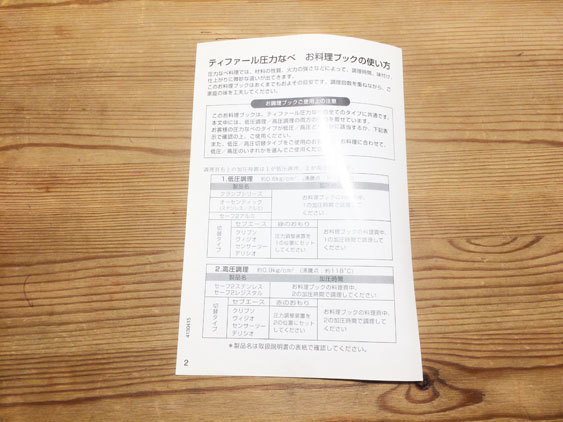 ティファール圧力なべ お料理ブックの使い方
圧力なべ料理では、材料の性質、火力の強さなどによって、調理時間、味付け、
仕上がりに微妙な違いが出てきます。
このお料理ブックはあくまでもおよその目安です。調理回数を重ねながら、ご
家庭の味を工夫してください。
お調理ブックご使用上の注意
このお料理ブックは、ティファール圧力なべの全てのタイプに共通です。
本文中には、低圧調理・高圧調理の両方の を載せています。
お客様の圧力なべのタイプが低圧/高圧 に該当するか、下記表
示で確認の上、ご使用ください。
また、低圧/高圧切替タイプをご使用のお お料理に合わせて、
低圧/高圧のいずれかを選んでご使用くだ
1.低圧調理 約0.6kg/cm² (沸騰点
製品名
クランプシリーズ
オーセンティック
(ステンレス・アルミ)
セーフ2アルミ
お料理ブックの料理頁中、
1の加圧時間で調理して
ください
切替タイプ
セブエース
クリプソ
ヴィジオ
センサーツー
デリシオ
緑のおもり
圧力調整装置を
1の位置にセット
してください
お料理ブックの料理頁中、
1の加圧時間で調理して
ください
2.高圧調理 約0.9kg/cm² (沸騰点 約118℃)
製品名 加圧時間
セーフ2ステンレス
セーフ2レジスタル
お料理ブックの料理頁中、
2の加圧時間で調理してください
切替タイプ
セブエース
クリプソ
ヴィジオ
センサーツー
デリシオ
赤のおもり
圧力調整装置を
2の位置にセット
してください
お料理ブックの料理頁中、
2の加圧時間で調理して
ください
*製品名は取扱説明書の表紙で確認してください。
2